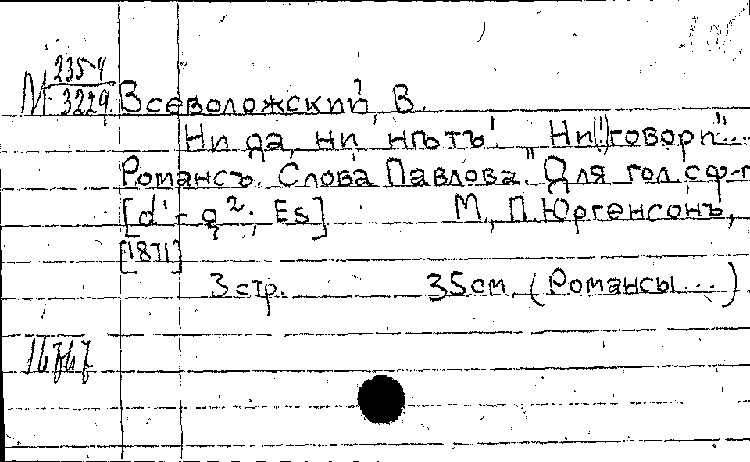 М 235-4
3229
Всеволожский, В.
Ни да, ни нѣтъ! "Ни(!) говори"...
Романсъ. Слова Павлова. Для гол. с ф-п
[d¹-g²; Es] М., П. Юргенсонъ,
[1871]
3 стр. 35 см. (Романсы...)